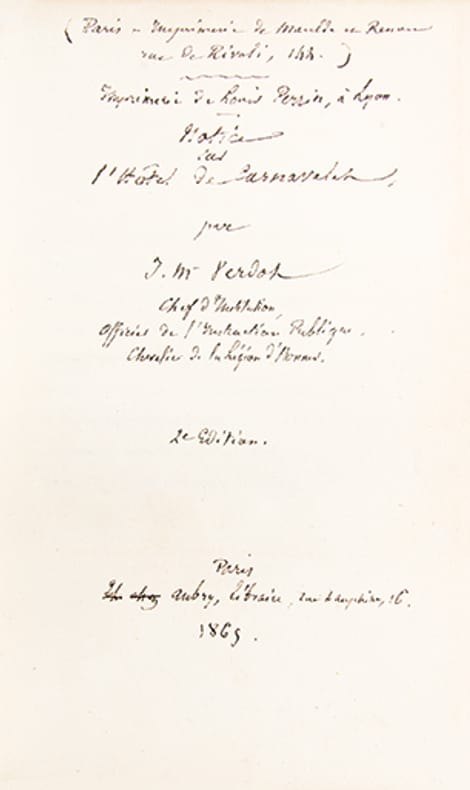 (Paris – Imprimerie de Maulde et Renou
rue de Rivoli, 144.)
Imprimerie de Louis Perrin, à Lyon.
Notice
sur
l'Hôtel de Carnavalet,
par
J. Mr Verdot
Chef d'Institution,
Officier de l'Instruction Publique.
Chevalier de la Légion d'Honneur.
2e Edition.
Paris
chez Aubry, libraire, rue Dauphine, 16.
1865.